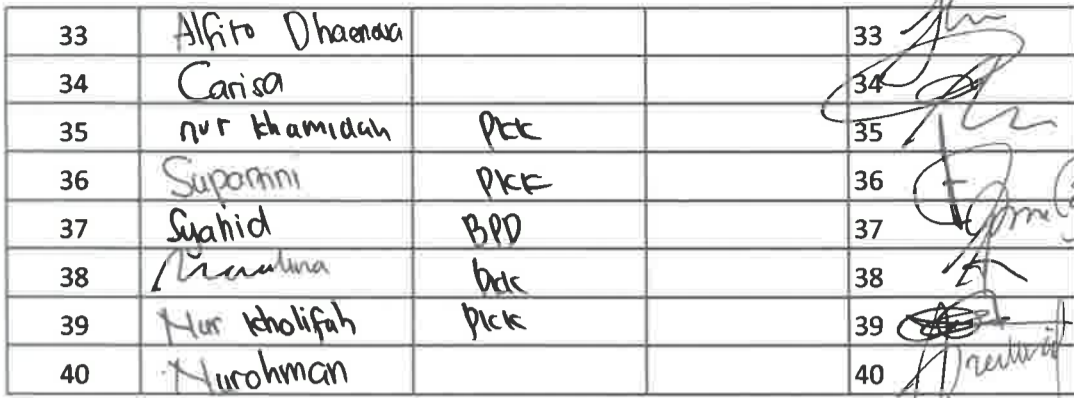 33 Alfito Dhaenova 33
34 Carisa 34
35 nur khamidah PKK 35
36 Supartini PKK 36
37 Syahid BPD 37
38 38
39 Nur kholifah PKK 39
40 Nurohman 40